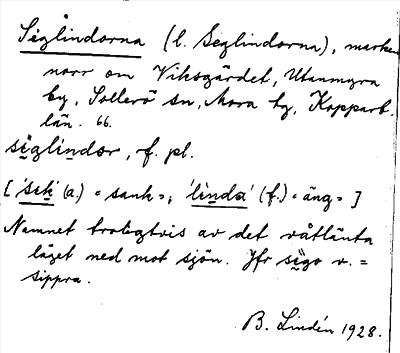 Siglindorna (l. Seglindorna), marken
norr om Viksgärdet, Utanmyra
by, Sollerö sn, Mora tg, Kopparb.
län. 66.
siglindor, f. pl.
['sik' (a.) = sank =; 'linda' (f.) = äng = ]
Namnet troligtvis av det våtlänta
läget ned mot sjön. Jfr siga v. =
sippra.
B. Lindén 1928.